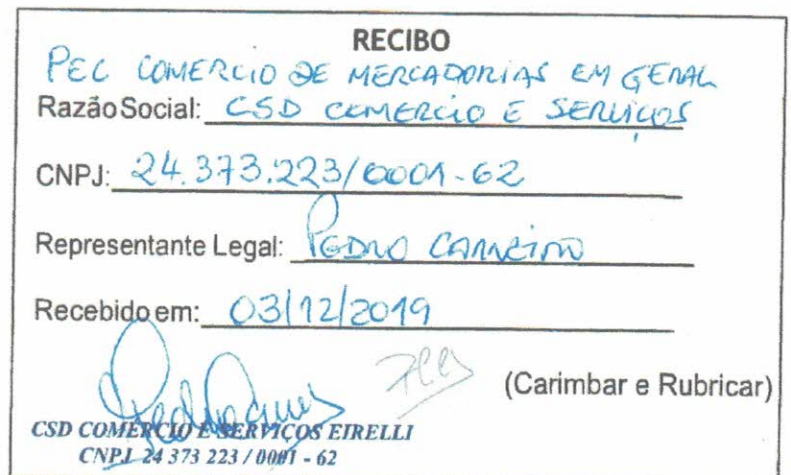 RECIBO
PEC COMERCIO DE MERCADORIAS EM GERAL
Razão Social: CSD COMERCIO E SERVIÇOS
CNPJ: 24.373.223/0001-62
Representante Legal: PEDRO CARNEIRO
Recebido em: 03/12/2019
(Carimbar e Rubricar)
CSD COMERCIO E SERVIÇOS EIRELLI
CNPJ 24 373 223 / 0001 - 62